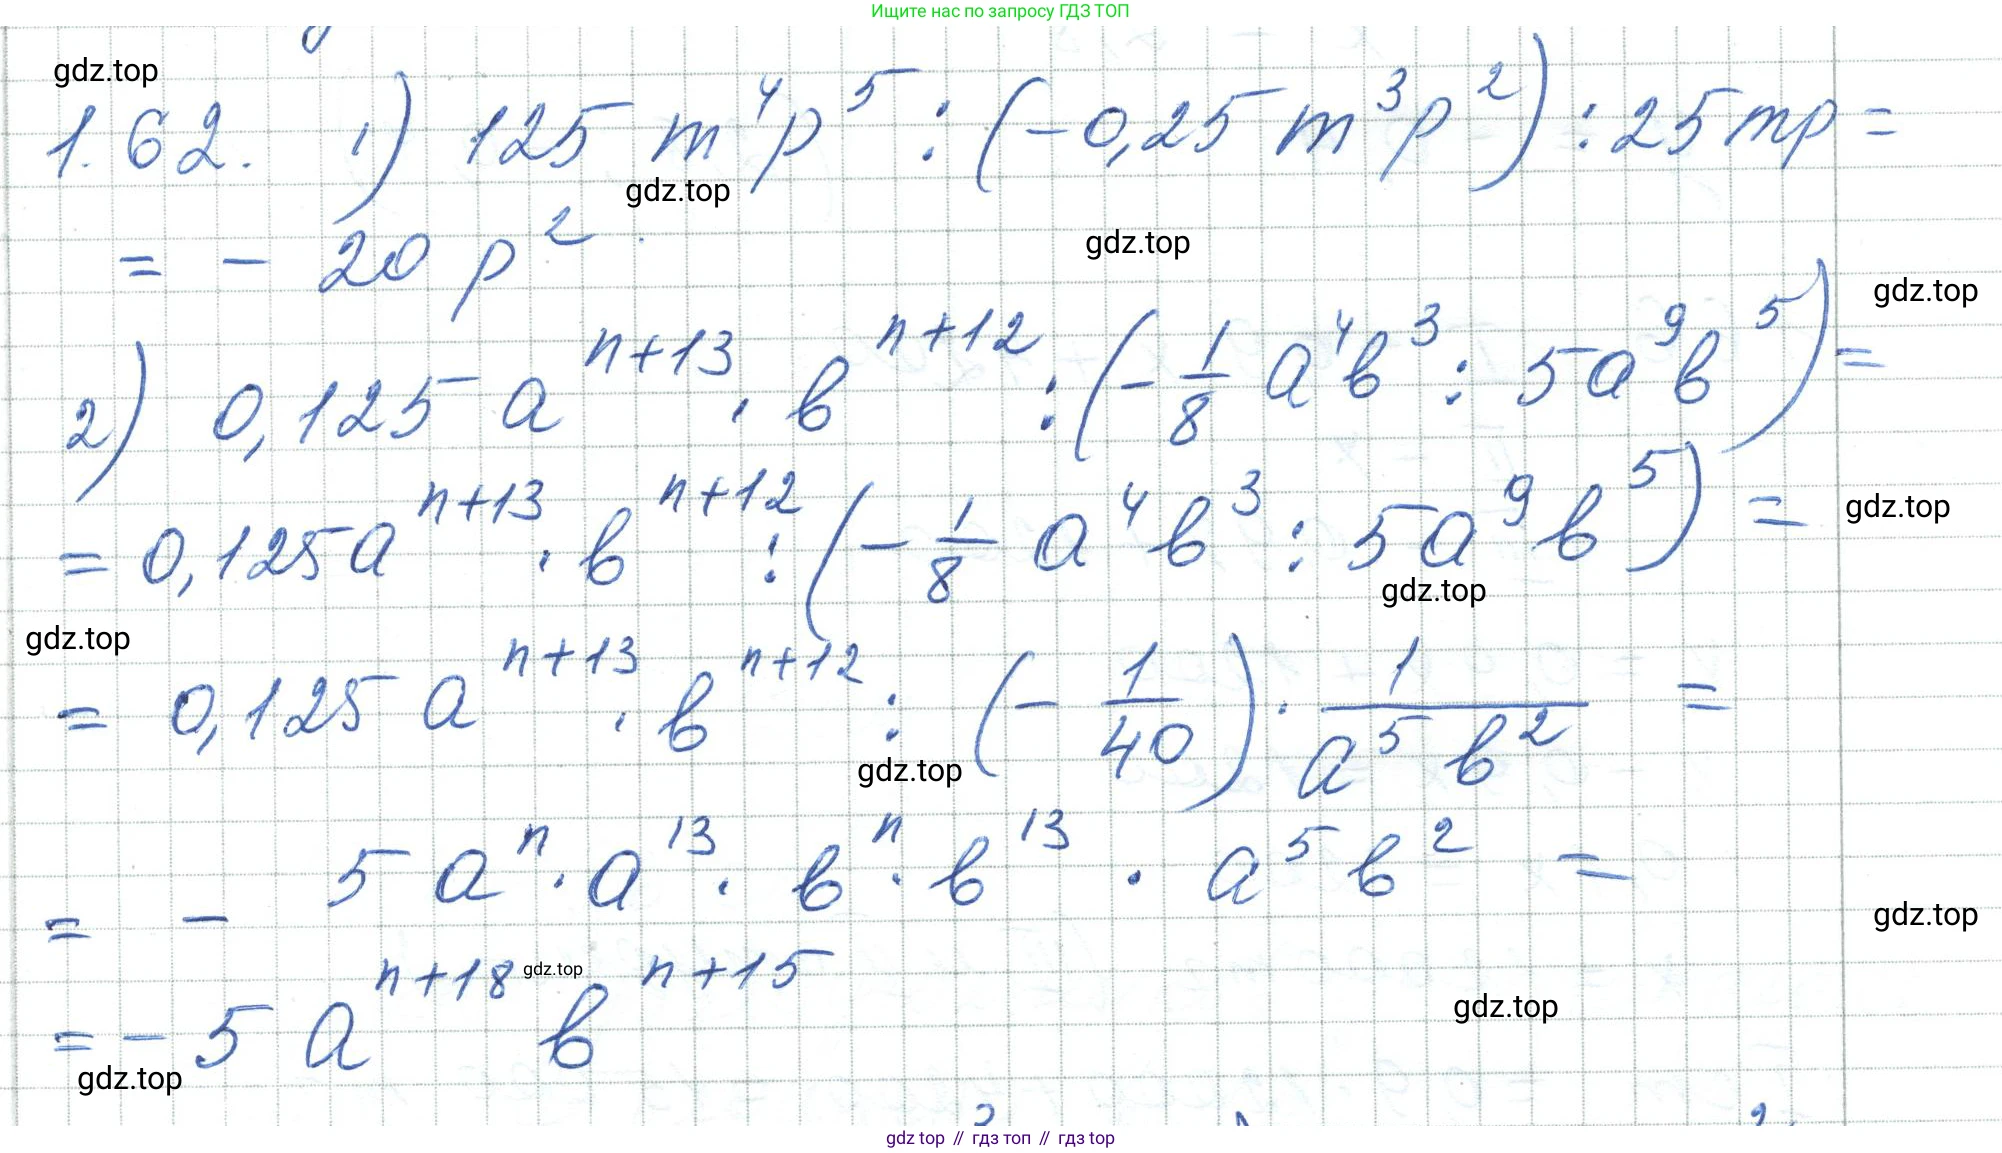 Ищите нас по запросу ГДЗ ТОП
gdz.top
1.62. 1) 125 m⁴p⁵ : (-0,25 m³p²) : 25mp =
gdz.top
= - 20 p²
gdz.top
gdz.top
2) 0,125 a^(n+13) · b^(n+12) : (- 1/8 a⁴b³ : 5a⁹b⁵) =
= 0,125a^(n+13) · b^(n+12) : (- 1/8 a⁴b³ : 5a⁹b⁵) =
gdz.top
gdz.top
gdz.top
= 0,125 a^(n+13) · b^(n+12) : (- 1/40) · 1/(a⁵b²) =
gdz.top
= - 5 aⁿ · a¹³ · bⁿ · b¹³ · a⁵b² =
gdz.top
= - 5 a^(n+18) b^(n+15)
gdz.top
gdz.top
gdz.top
gdz top // гдз топ // гдз top